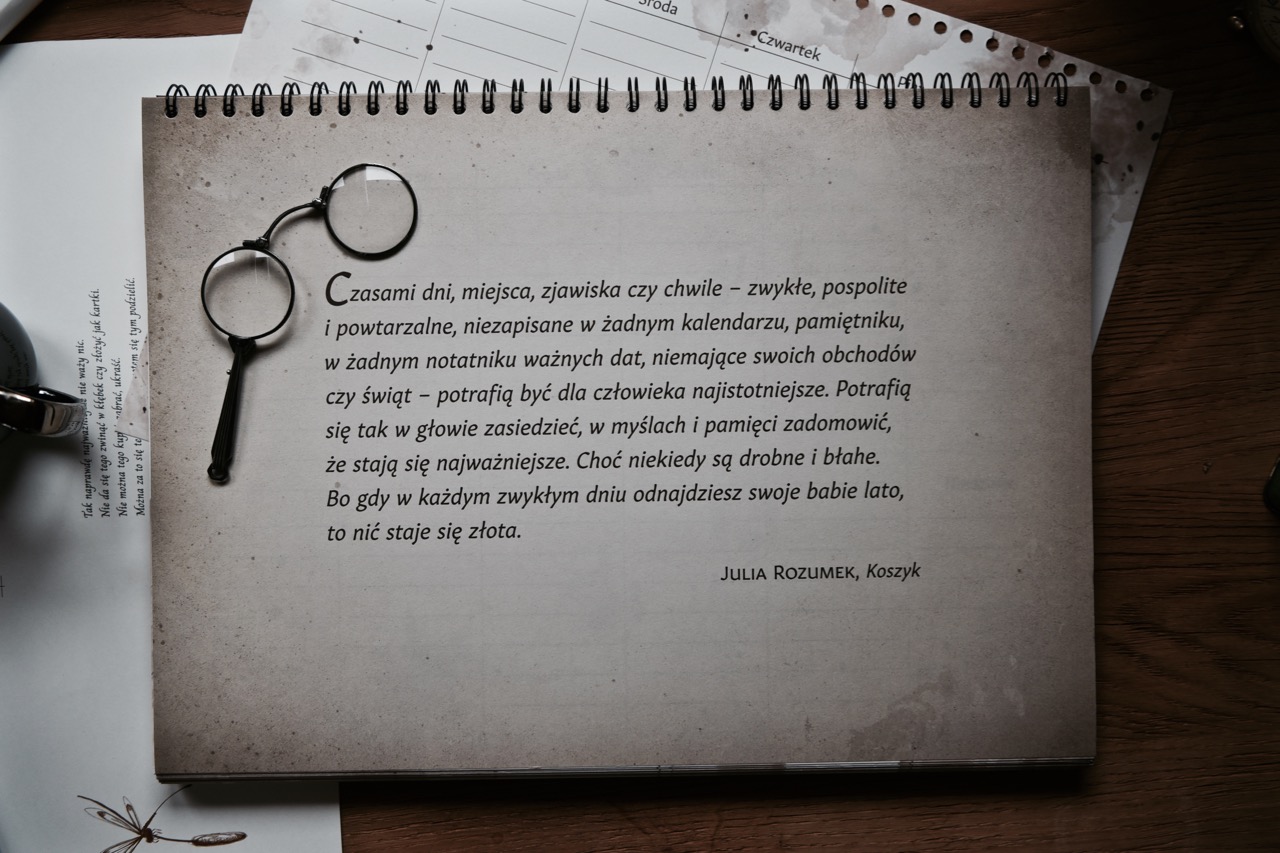 Środa
Czwartek
Czasami dni, miejsca, zjawiska czy chwile – zwykłe, pospolite
i powtarzalne, niezapisane w żadnym kalendarzu, pamiętniku,
w żadnym notatniku ważnych dat, niemające swoich obchodów
czy świąt – potrafią być dla człowieka najistotniejsze. Potrafią
się tak w głowie zasiedzieć, w myślach i pamięci zadomowić,
że stają się najważniejsze. Choć niekiedy są drobne i błahe.
Bo gdy w każdym zwykłym dniu odnajdziesz swoje babie lato,
to nić staje się złota.
Julia Rozumek, Koszyk
Tak naprawdę najważniejsze nie waży nic.
Nie da się tego zwinąć w kłębek czy złożyć jak kartki.
Nie można tego ukraść.
Można za to się tym podzielić.